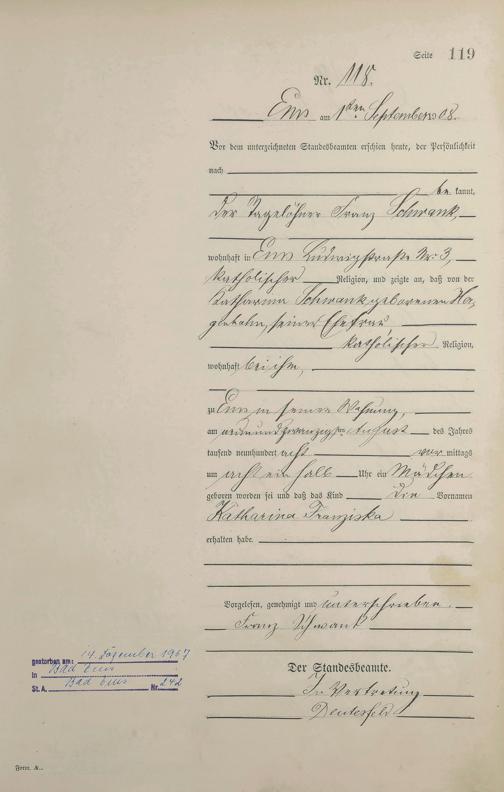 Seite 119
Nr. 118.
Ems am 1ten September 1908.
Vor dem unterzeichneten Standesbeamten erschien heute, der Persönlichkeit
nach
be kannt,
der Tagelöhner Franz Schwank,
wohnhaft in Ems Ludwigstraße Nr. 3,
katholischer Religion, und zeigte an, daß von der
Katharina Schwank geborenen
seiner Ehefrau
katholischer Religion,
wohnhaft bei ihm,
zu Ems in seiner Wohnung,
am August des Jahres
tausend neunhundert acht vor mittags
um acht ein halb Uhr ein Mädchen
geboren worden sei und daß das Kind die Vornamen
Katharina Franziska
erhalten habe.
Vorgelesen, genehmigt und unterschrieben.
Franz Schwank
gestorben am: 14. Dezember 1967
in Bad Ems
St. A. Bad Ems Nr. 242
Der Standesbeamte.
In Vertretung
Form. A.